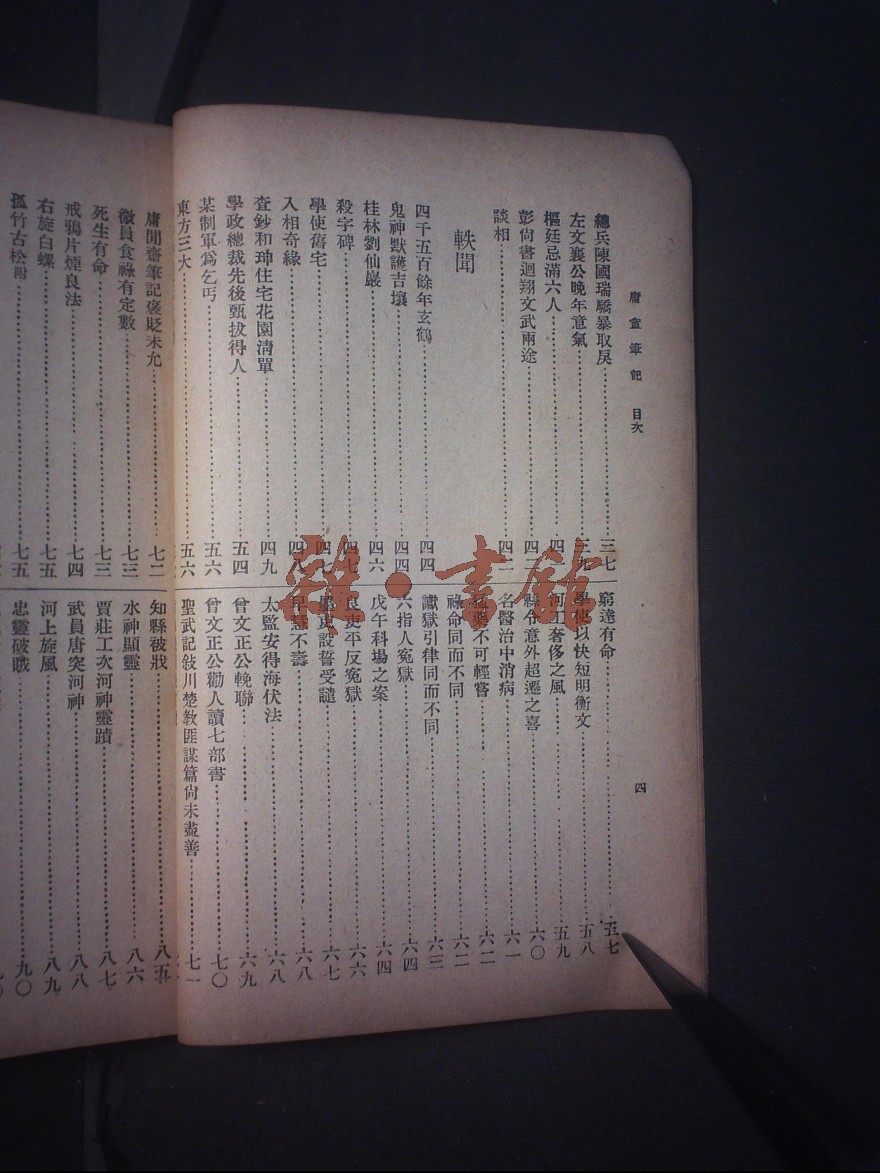 庸盦筆記 目次
四
總兵陳國瑞驕暴取戾 三七
左文襄公晚年意氣 三九
樞廷忌滿六人
彭尙書迴翔文武兩途 四二
談相
軼聞
四千五百餘年玄鶴 四四
鬼神默護吉壤 四四
桂林劉仙巖 四六
殺字碑 四七
學使舊宅 四七
入相奇緣 四八
查鈔和珅住宅花園淸單 四九
學政總裁先後甄拔得人 五四
某制軍爲乞丐 五六
東方三大 五六
窮達有命 五七
學使以快短明衡文 五八
河工奢侈之風 五九
縣令意外超遷之喜 六〇
名醫治中消病 六一
猛藥不可輕嘗 六二
祿命同而不同 六二
讞獄引律同而不同 六三
六指人冤獄 六四
戊午科場之案 六四
良吏平反冤獄 六六
設誓受譴 六七
早慧不壽 六八
太監安得海伏法 六八
曾文正公輓聯 六九
曾文正公勸人讀七部書 七〇
聖武記敍川楚敎匪謀篇尙未盡善 七一
庸閒齋筆記褒貶未允 七二
微員食祿有定數 七三
死生有命 七三
戒鴉片煙良法 七四
右旋白螺 七五
孤竹古松附 七五
知縣被戕 八五
水神顯靈 八六
賈莊工次河神靈蹟 八七
武員唐突河神 八八
河上旋風 八九
忠靈破賊 九〇
雜·書館